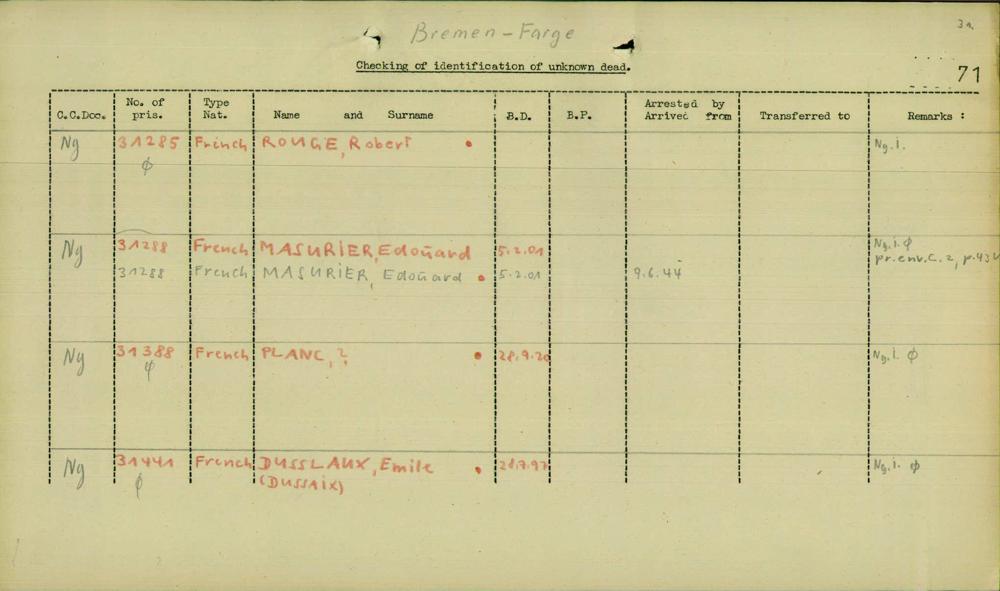 Bremen - Farge
Checking of identification of unknown dead.
71
C.C.Doc.
No. of pris.
Type Nat.
Name and Surname
B.D.
B.P.
Arrested by
Arrived from
Transferred to
Remarks :
Ng 31285 French ROUGE, Robert Ng.i.
φ
Ng 31288 French MASURIER, Edouard 5.2.01 Ng.i. φ
31288 French MASURIER, Edouard 5.2.01 9.6.44 pr.env.C.2, p.43
Ng 31388 French PLANC, ? 28.9.20 Ng.i. φ
φ
Ng 31441 French DUSSLAUX, Emile 28.7.97 Ng.i. φ
φ (DUSSAIX)